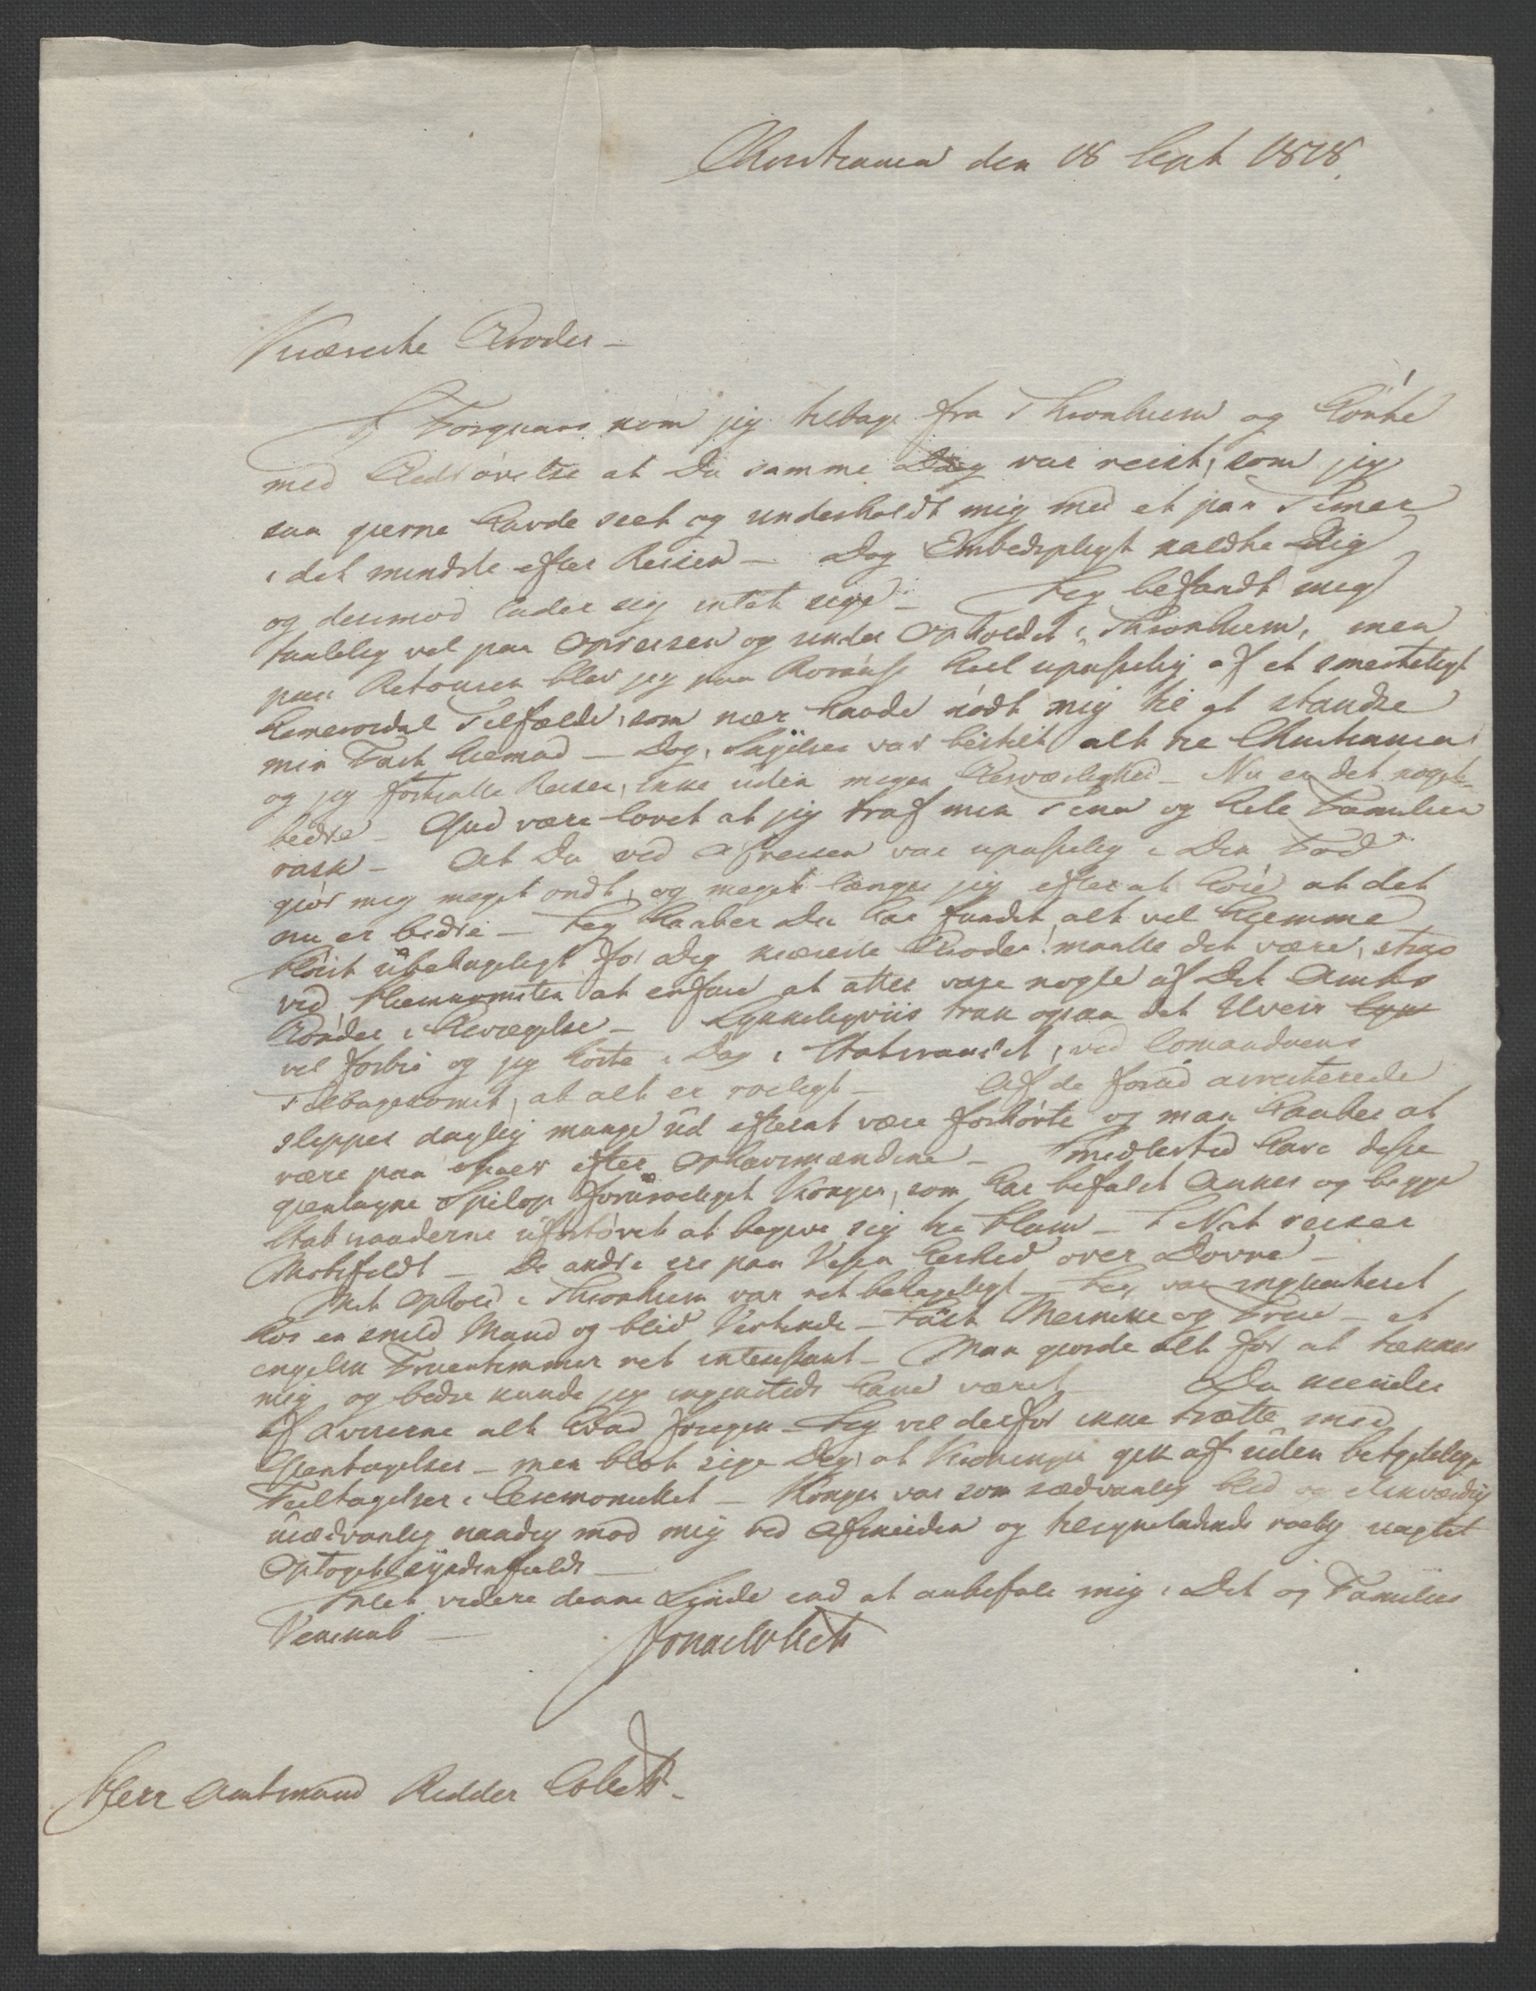 Christiania den 18 Sept 1818.
Kiæreste Broder –
I Forgaars kom jeg tilbage fra Thronhiem og hørte
med Bedrøvelse at Du samme Dag var reist, som jeg
saa gierne havde seet og underholdt mig med et par Timer
i det mindste efter Reisen – Dog Embedspligt kaldte Dig
og derimod lader sig intet sige – Jeg befandt mig
taalelig vel paa Opreisen og under Opholdet i Thronhiem, men
paa Retouren blev jeg paa heel upasselig af et smerteligt
Hemeroidal Tilfælde, som nær havde nødt mig til at standse
min Fart hiemad – Dog, var bestilt alt til Christiania
og jeg fortsatte Reisen, ikke uden megen Besværlighed – Nu er det noget
bedre – Gud være lovet at jeg traf min Tina og hele Familien
rask – At Du ved Afreisen var upasselig i Din Fod
giør mig meget ondt, og meget længes jeg efter at høre at det
nu er bedre – Jeg haaber Du har fundet alt vel hiemme
Høist ubehageligt for Dig kiæreste Broder! maatte det være, strax
ved Hiemkomsten at erfare at atter vare nogle af Dit Amts
Bønder i Bevægelse – Lykkeligviis trak ogsaa det Uveir
vel forbi og jeg hørte i Dag i Statsraadet, ved Comandoens
Tilbagekomst, at alt er roeligt – Af de forud arresterede
slippes daglig mange ud efterat være forhørte og man haaber at
være paa Spoer efter Ophavsmændene – Imidlertid have disse
gientagne Spilop foruroeliget Kongen, som har befalet Anker og begge
Statsraaderne ufortøvet at begive sig til Ham – I Nat reiser
Motzfeldt – De andre ere paa Veyen herhid over Dovre –
Mit Ophold i Thronhiem var ret behageligt – Jeg var inquarteret
hos en snild Mand og blid Vertinde – Meincke og Frue – et
engelsk Fruentimmer ret interessant – Man giorde alt for at tækkes
mig og bedre kunde jeg ingensteds have været – Du kiender
af Aviserne alt hvad foregik – Jeg vil derfor ikke trætte med
Gientagelser – men blot sige Dig, at Kroningen gik af uden betydelige
Feiltagelser i Ceremoniellet – Kongen var som sædvanlig blid og elskværdig
usædvanlig naadig mod mig ved Afskeeden og tilsyneladende roelig uagtet
Optoget syndenfields –
Intet videre denne Sinde end at anbefale mig i Dit og Families
Venskab –
Jonas Collett
Herr Amtmand Ridder Collett –